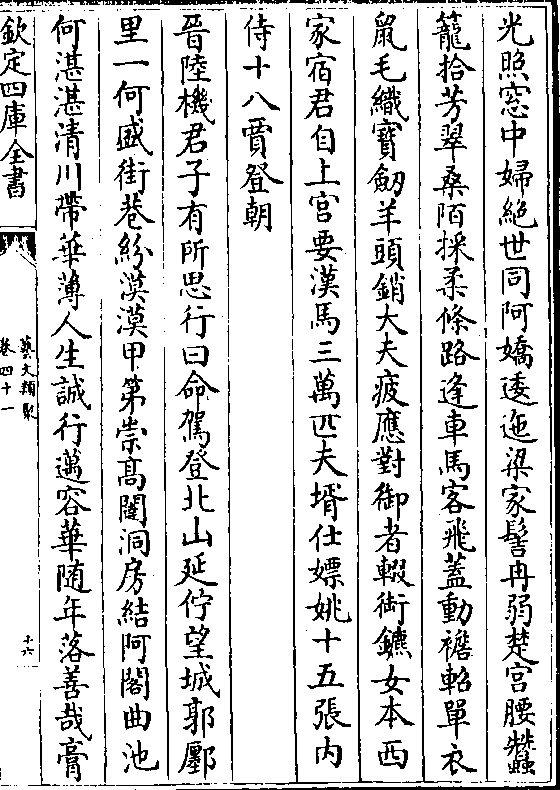 光照窓中婦絶世同阿嬌逶迤梁家髻冉弱楚宫腰蠶
籠拾芳翠桑陌採柔條路逢車馬客飛蓋動襜軺單衣
䑕毛織寶劒羊頭銷大夫疲應對御者輟銜鑣女本西
家宿君自上宫要漢馬三萬匹夫壻仕嫖姚十五張内
侍十八賈登朝
晉陸機君子有所思行曰命駕登北山延佇望城郭廛
里一何盛街巷紛漠漠甲第崇髙闥洞房結阿閣曲池
何湛湛清川帶華薄人生誠行邁容華随年落善哉膏
欽定四庫全書
藝文類聚
卷四十一
十六